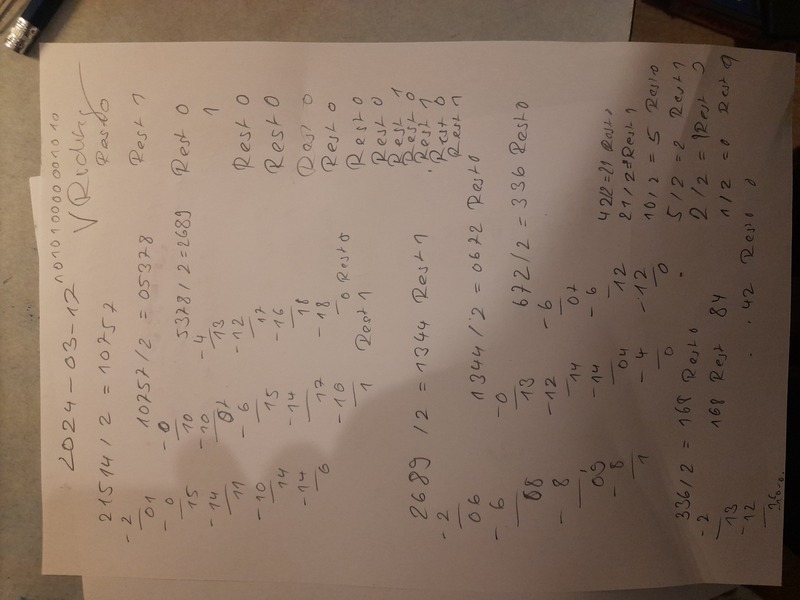 2024-03-12
1010100000001010
21514/2 = 10757
Rest 0
-2
01
-0
15
-14
11
-10
14
-14
0
10757/2 = 05378
Rest 1
-0
10
-10
07
-6
15
-14
17
-16
1
Rest 1
5378/2=2689
Rest 0
-4
13
-12
17
-16
18
-18
0 Rest 0
1
Rest 0
Rest 0
Rest 0
Rest 0
Rest 0
Rest 0
Rest 1
Rest 0
Rest 1
Rest 0
Rest 1
2689 /2 = 1344 Rest 1
-2
06
-6
08
-8
09
-8
1
1344/2 = 0672 Rest 0
-0
13
-12
14
-14
04
-4
0
672/2 = 336 Rest 0
-6
07
-6
12
-12
0
336/2 = 168 Rest 0
-2
13
-12
168 Rest 84
42 Rest 0
42/2=21 Rest 0
21/2 Rest 1
10/2 = 5 Rest 0
5/2 = 2 Rest 1
2/2 = 1 Rest
1/2 = 0 Rest